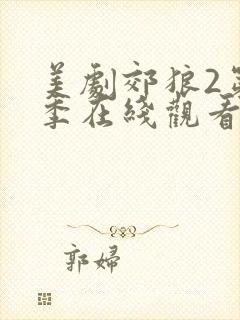 美劇郊狼2第
季在綫觀看
郭婦